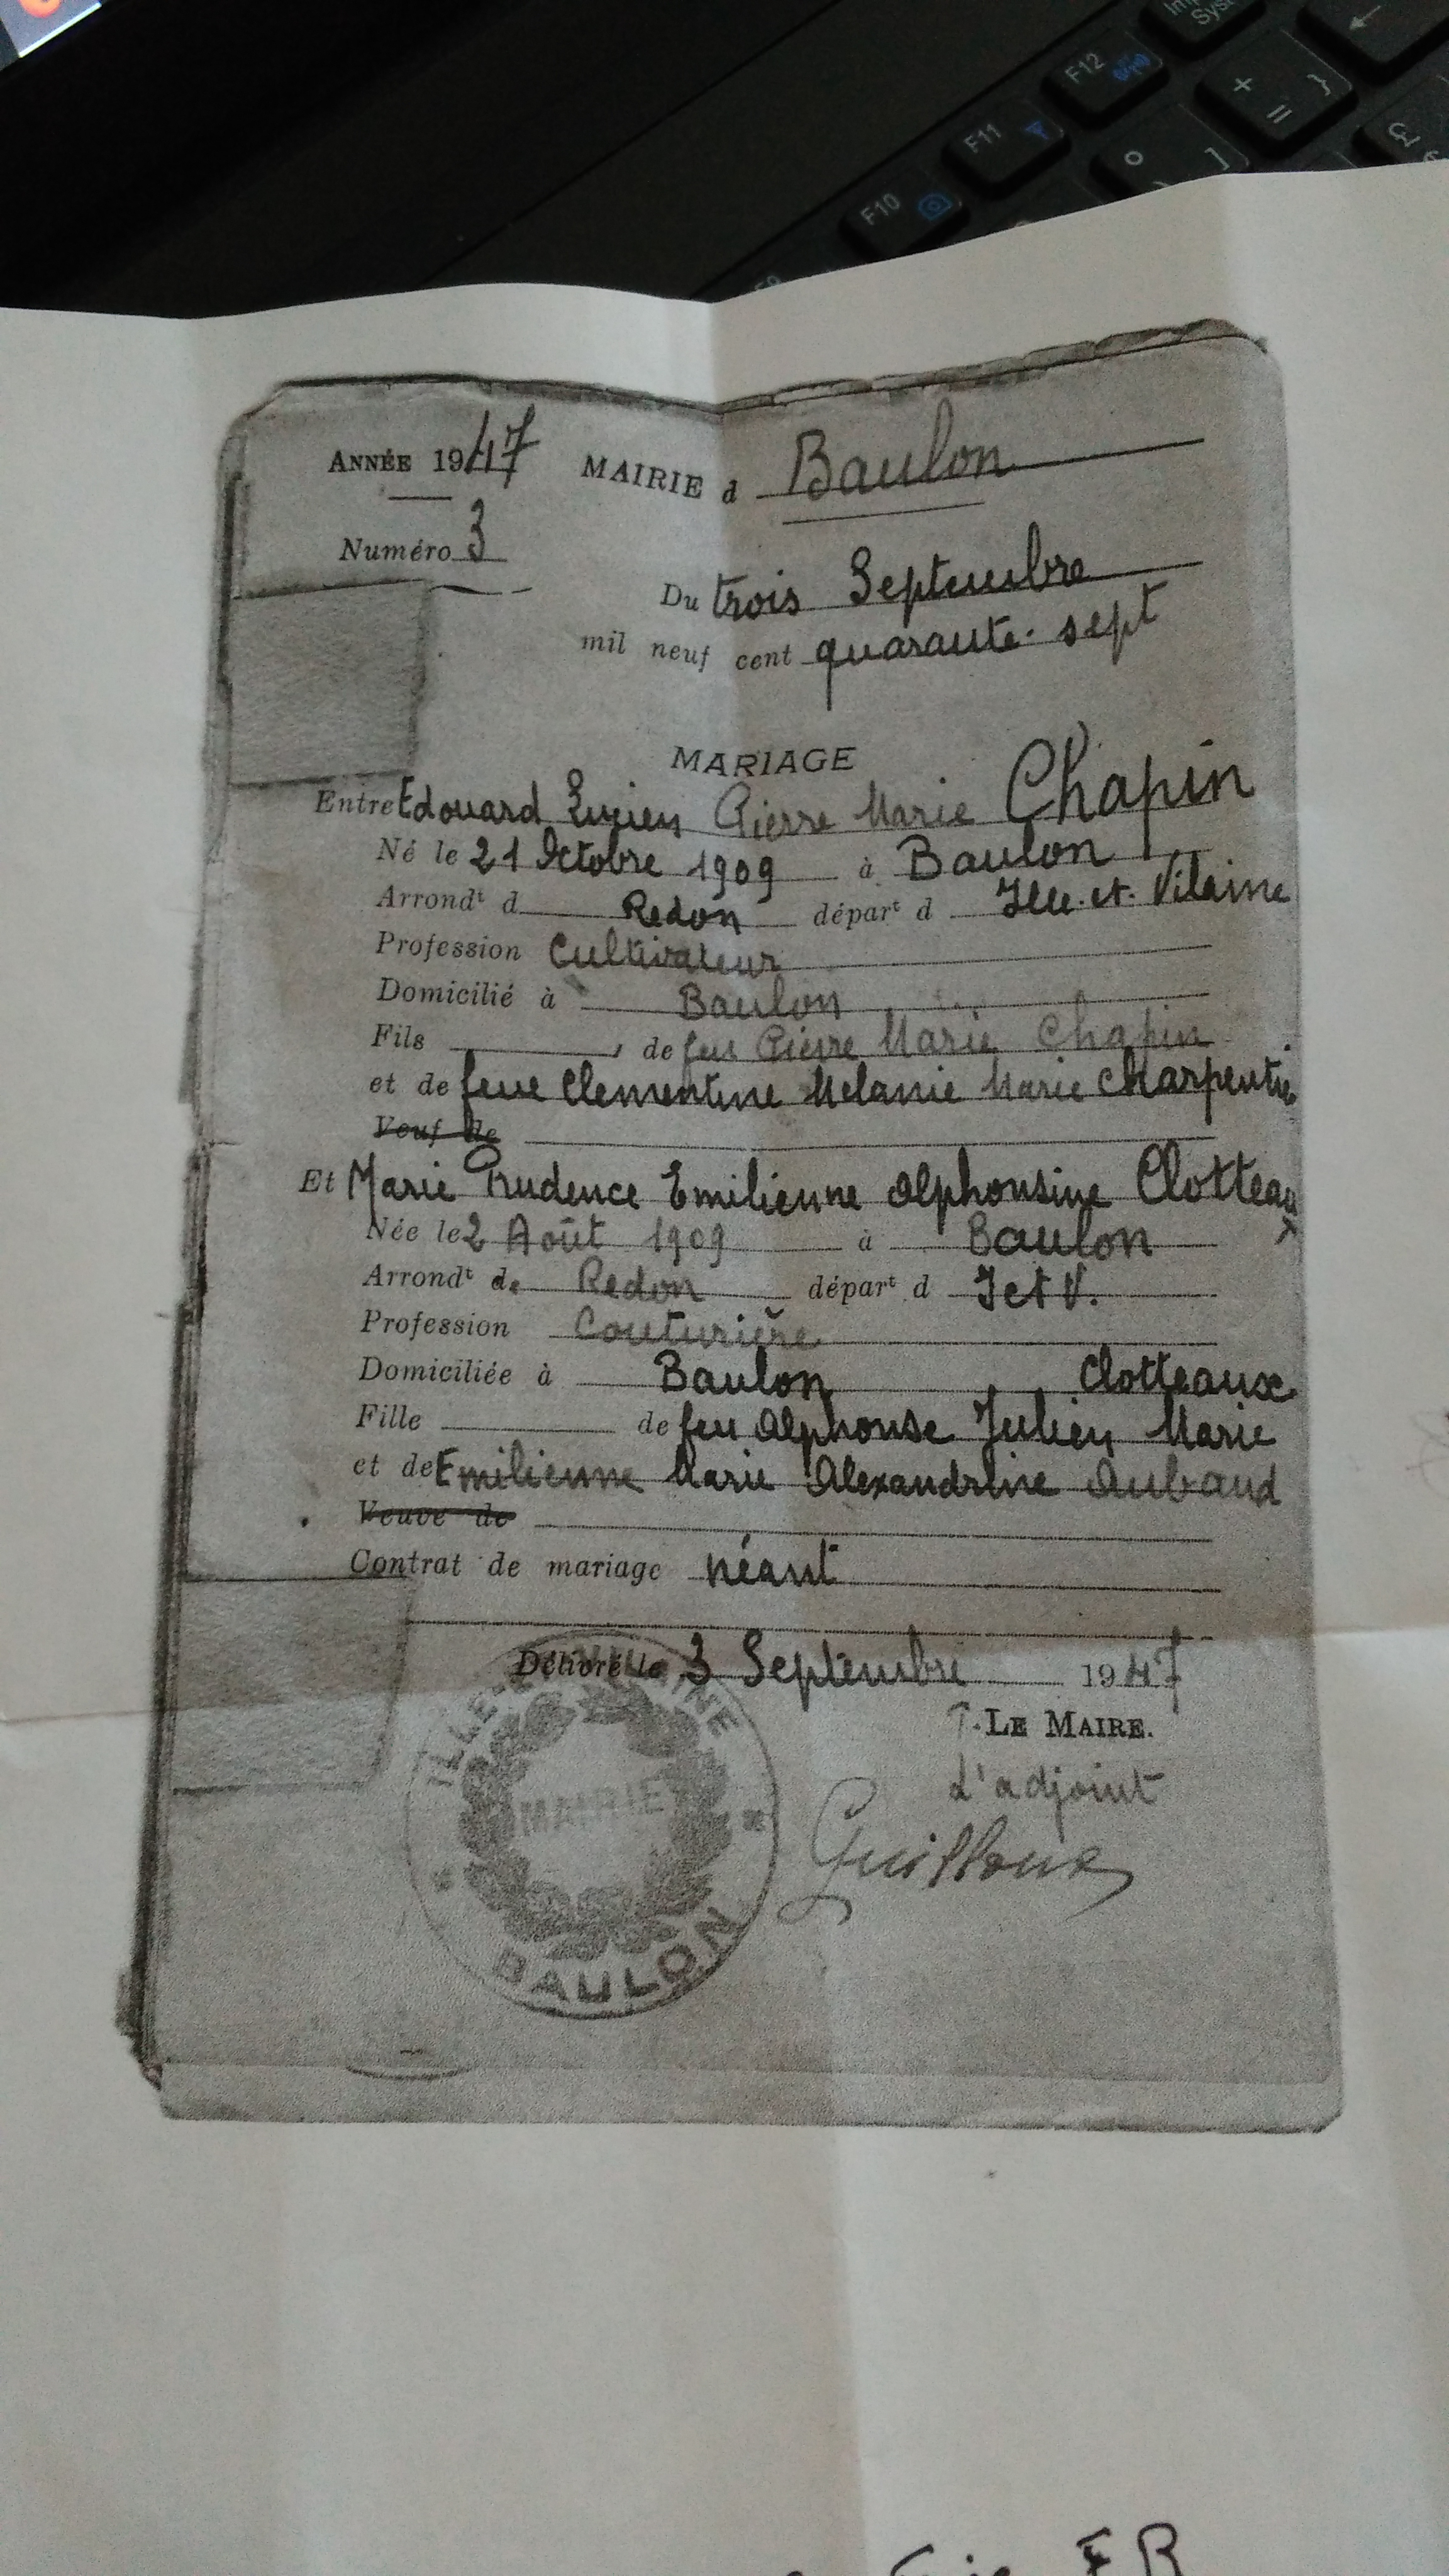 Impr
Syst
F12
+
=
}
F11
F10
°
)
]
£
$
F9
ANNÉE 1947 MAIRIE d Baulon
Numéro 3
Du trois Septembre
mil neuf cent quarante-sept
MARIAGE
Entre Edouard Lucien Pierre Marie Chapin
Né le 21 Octobre 1909 à Baulon
Arrondt d Redon départ d Ille-et-Vilaine
Profession Cultivateur
Domicilié à Baulon
Fils , de feu Pierre Marie Chapin
et de feue Clementine Melanie Marie Charpentier
Veuf de
Et Marie Prudence Emilienne Alphonsine Clotteau
x
Née le 2 Août 1909 à Baulon
Arrondt de Redon départ d I et V.
Profession Couturière
Domiciliée à Baulon Clotteaux
Fille de feu Alphonse Julien Marie
et de Emilienne Marie Alexandrine Aubaud
Veuve de
Contrat de mariage néant
Délivré le 3 Septembre 1947
P. LE MAIRE.
L'adjoint
Guilloux
ILLE-ET-VILAINE
MAIRIE
BAULON